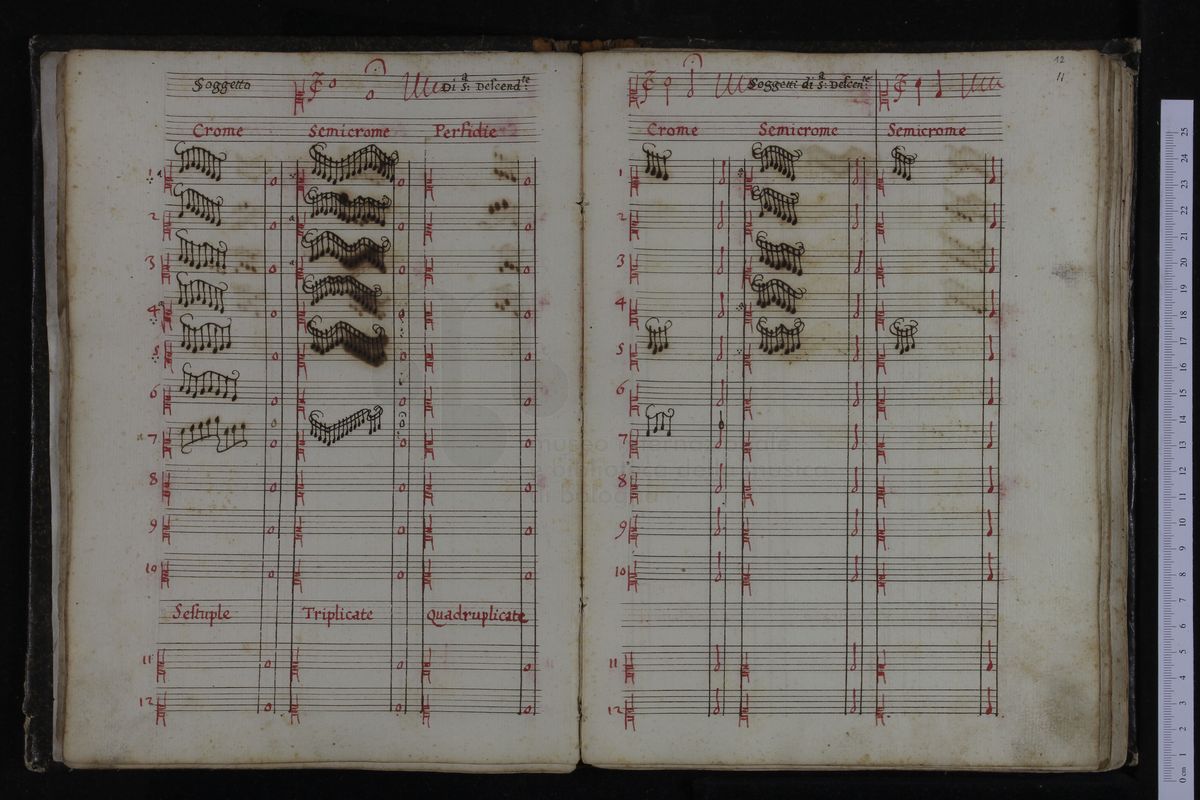 Soggetto Di 5:ª Descend:te
Crome Semicrome Perfidie
1
2
3
4
5
6
7
8
9
10
Sestuple Triplicate Quadruplicate
11
12
12
11
Soggetti di 5:ª Descen:te
Crome Semicrome Semicrome
1
2
3
4
5
6
7
8
9
10
11
12
museo internazionale
e biblioteca della musica
di bologna